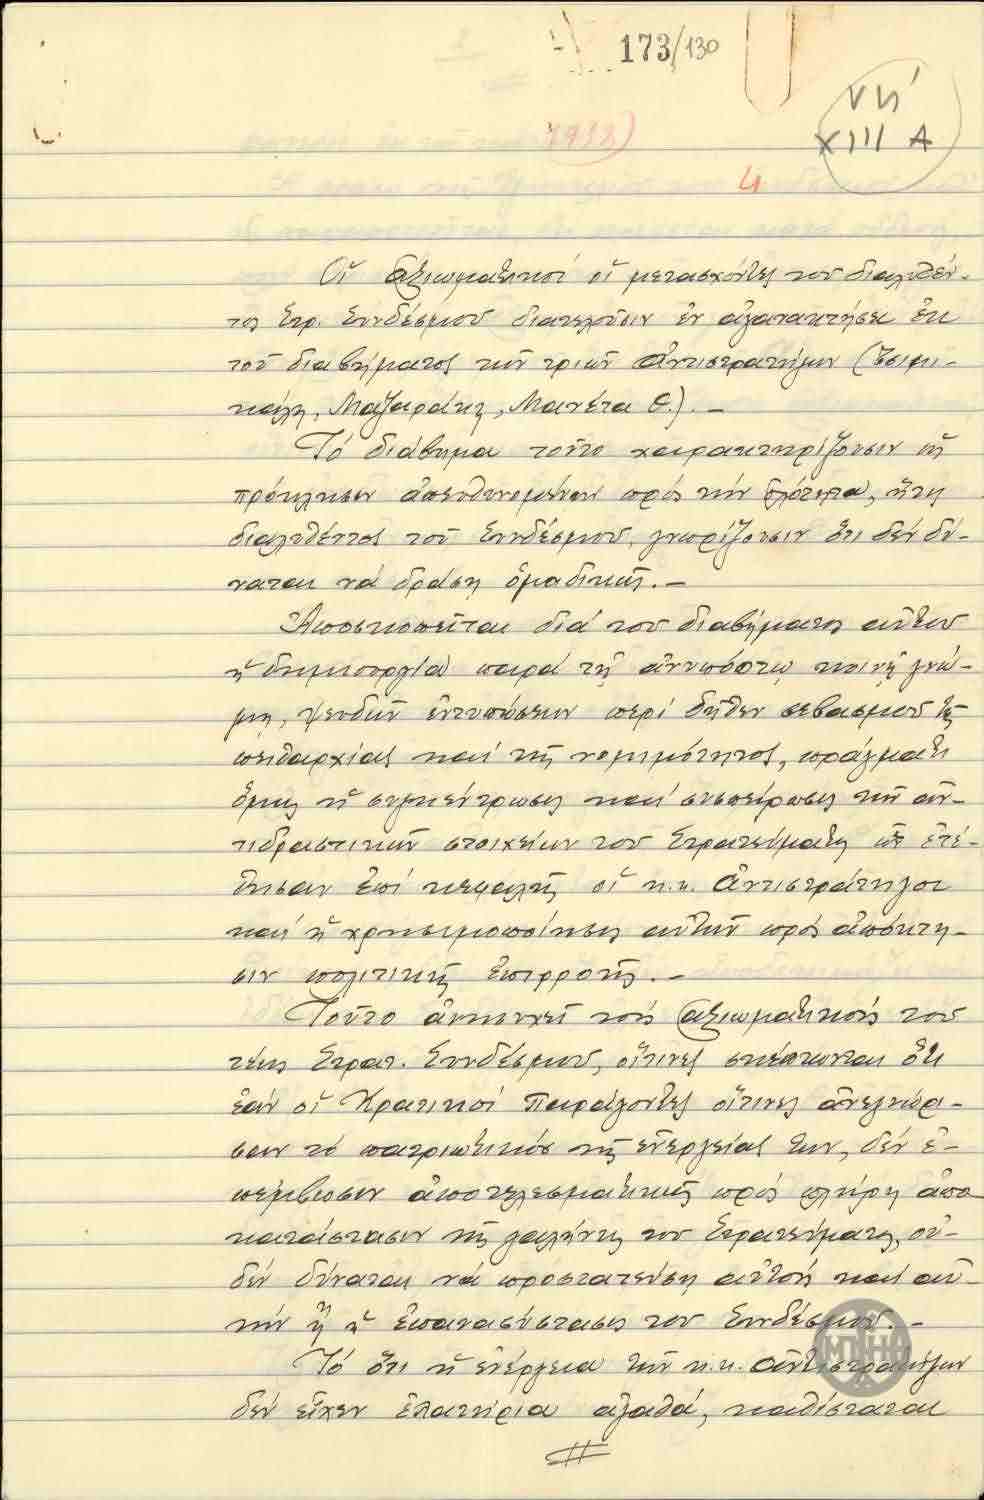 173/130
VII'
XIII A
1932)
4
Οἱ ἀξιωματικοί οἱ μετασχόντες του διαλυθέν-
τος Στρ. Συνδέσμου διατελοῦσιν ἐν ἀγανακτήσει ἐκ
τοῦ διαβήματος τῶν τριῶν ἀντιστρατήγων (Τσιμι-
κάλη, Μαζαράκη, Μανέτα Θ.). –
Τό διάβημα τοῦτο χαρακτηρίζουσιν ὡς
πρόκλησιν ἀπευθυνομένην πρός τήν ὁλότητα, ἥτις
διαλυθέντος τοῦ Συνδέσμου, γνωρίζουσιν ὅτι δέν δύ-
ναται νά δράσῃ ὁμαδικῶς. –
Ἀποσκοπεῖται διά του διαβήματος αὐτου
ἡ δημιουργία παρά τῇ ἀνυπόπτῳ κοινῇ γνώ-
μῃ, ψευδῶν ἐντυπώσεων περί δῆθεν σεβασμοῦ τῆς
πειθαρχίας καί τῆς νομιμότητος, πράγματι
ὅμως ἡ συγκέντρωσις καί συσπείρωσις τῶν ἀν-
τιδραστικῶν στοιχείων του Στρατεύματος ὧν ἐτέ-
θησαν ἐπί κεφαλῆς οἱ κ.κ. Ἀντιστράτηγοι
καί ἡ χρησιμοποίησις αὐτῶν πρός ἀπόκτη-
σιν πολιτικῆς ἐπιρροῆς. –
Τοῦτο ἀνησυχεῖ τούς ἀξιωματικούς του
τέως Στρατ. Συνδέσμου, οἵτινες σκέπτονται ὅτι
ἐάν οἱ Κρατικοί Παράγοντες οἵτινες ἀνεγνώρι-
σαν τό πατριωτικόν τῆς ἐνεργείας των, δέν ἐ-
πέμβωσιν ἀποτελεσματικῶς πρός πλήρη ἀπο
κατάστασιν τῆς γαλήνης του Στρατεύματος, οὐ-
δέν δύναται νά προστατεύσῃ αὐτούς καί αὐ-
τήν ἤ ἡ ἐπανασύστασις του Συνδέσμου. –
Τό ὅτι ἡ ἐνέργεια τῶν κ.κ. ἀντιστρατήγων
δέν εἶχεν ἐλατήρια ἀγαθά, καθίσταται